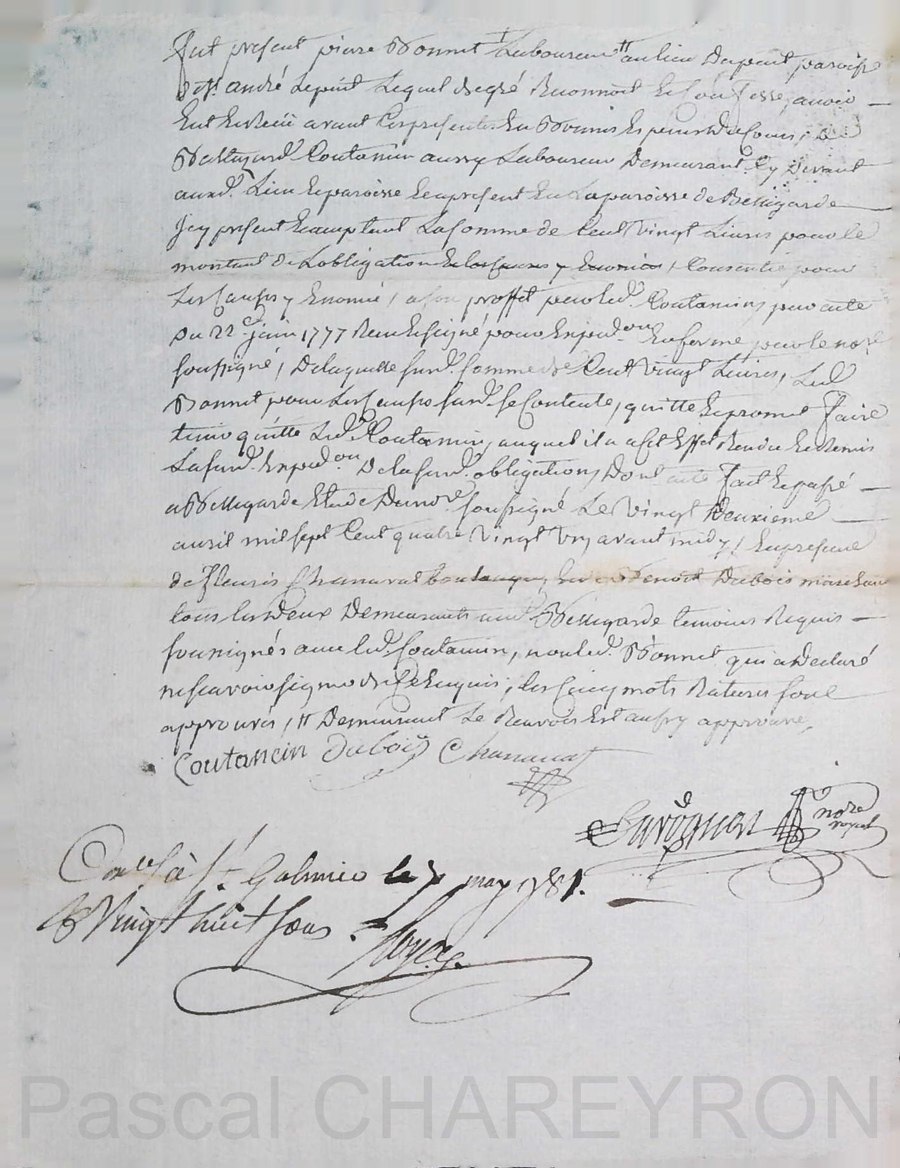 fut présent pierre Bonnet † Laboureur †† au lieu Dupuit paroisse
St. andré Lepuit Lequel de gré Reconnoit Et Confesse, avoir
Eut Et Receü avant Ces presentes En Bonnes Especes Du Cours, De
Baltazard Coutancin aussy Laboureur Demeurant Cy Devant
aud. Lieu Et paroisse Et apresent En La paroisse de Bellegarde
Icy présent Acceptant La somme de Cent Vingt Livres pour le
montant de L'obligation y Enoncée, Consentie pour
Les Causes y Enoncé, a son proffit par led. Coutancin par acte
du 22e Juin 1777 En forme par le nore.
soussigné, De laquelle surd. somme de Cent Vingt Livres, Led.
Bonnet pour Les Causes surd. se Contente, quitte Et promet faire
tenir quitte Led. Coutancin, auquel il a a cet Effet Rendu Et Remis
La surd. Expedon. De la surd. obligation, Dont acte fait Et passé
a Bellegarde Etude Du nore. soussigné Le Vingt Deuxieme
avril mil sept Cent quatre Vingt Un avant midy, En presence
de fleuris Chanavat boulanger, Benoit Dubois
tous les Deux Demeurants aud. Bellegarde temoins Requis
soussignés avec led. Coutancin, non led. Bonnet qui a Declaré
ne scavoir signer de Ce Enquis, les Cinq mots Raturés sont
approuvés, †† Demeurant Le Renvois Est aussy approuvé,
Coutancin Dubois Chanavat
nore royal
Con.lé à St. Galmier le 7 may 1781.
Vingt huit sous.
Pascal CHAREYRON